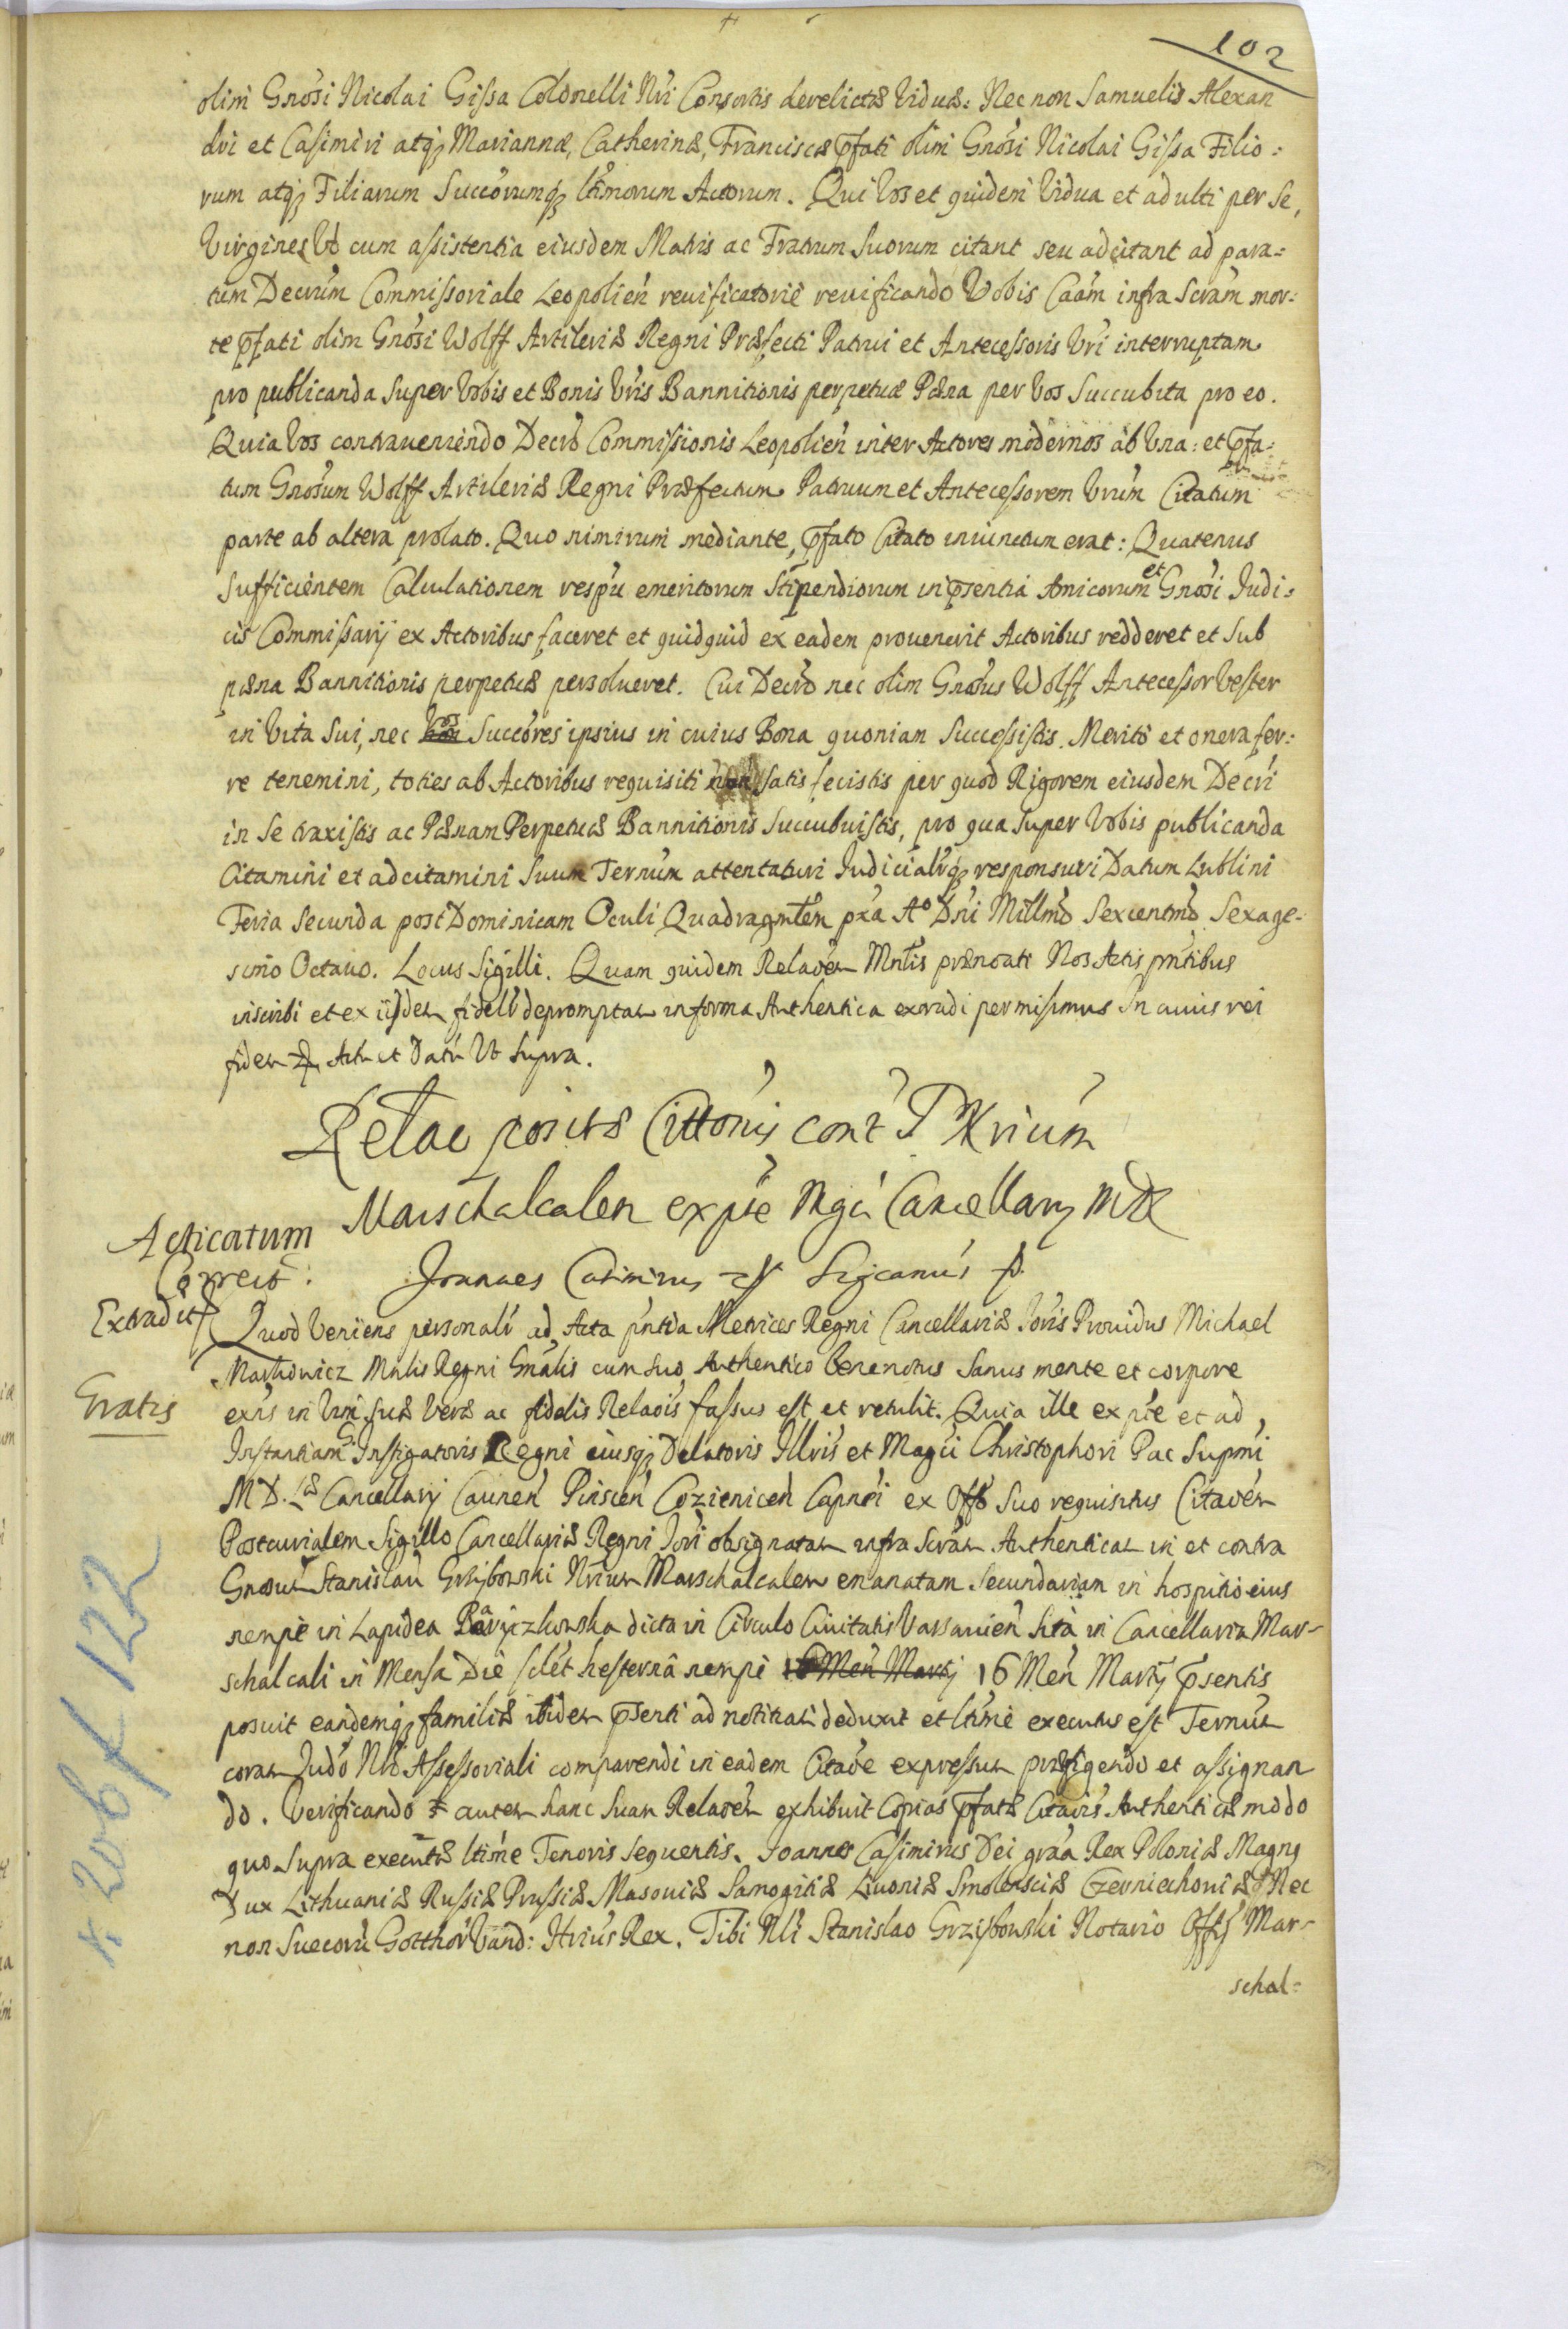 102
olim Gnosi Nicolai Gissa Colonelli Nri Consortis derelictæ Viduæ: Nec non Samuelis Alexan
dri et Casimiri atq; Mariannæ, Catherinæ, Franciscæ pfati olim Gnosi Nicolai Gissa Filio:
rum atq; Filiarum Succorumq; ltimorum Actorum. Qui Vos et quidem Vidua et adulti per se,
Virgines Vo cum assistentia eiusdem Matris ac Fratrum Suorum citant seu adcitant ad para=
tum Decrum Commissoriale Leopolien reuificatorie reuificando Vobis Caam infra Scram mor:
te pfati olim Gnosi Wolff Artileriæ Regni Præfecti Patrui et Antecessoris Vri interruptam
pro publicanda Super Vobis et Bonis Vris Bannitionis perpetuæ Pæna per Vos Succubita pro eo.
Quia Vos contraueniendo Decro Commissionis Leopolien inter Actores modernos ab Vna: et pfa:
tum Gnosum Wolff Artileriæ Regni Præfectum Patruum et Antecessorem Vrum Citatum
parte ab altera prolato. Quo nimirum mediante, pfato Citato iniunctum erat: Quatenus
Sufficientem Calculationem respu emeritorum Stipendiorum in psentia Amicorum et Gnosi Iudi:
cis Commissarij ex Actoribus faceret et quidquid ex eadem prouenerit Actoribus redderet et Sub
pæna Bannitionis perpetuæ persolueret. Cui Decro nec olim Gnosus Wolff Antecessor Vester
in Vita Sui, nec Vos Succores ipsius in cuius Bona quoniam Successistis. Merito et onera fer:
re tenemini, toties ab Actoribus requisiti non satis fecistis per quod Rigorem eiusdem Decri
in Se traxistis ac Pænam Perpetuæ Bannitionis Succubuistis, pro qua Super Vobis publicanda
Citamini et adcitamini Suum Ternum attentaturi Iudicialrq; responsuri Datum Lublini
Feria Secunda post Dominicam Oculi Quadragmtem pxa Ao Dni Millmo Sexcentmo Sexage-
simo Octauo. Locus Sigilli. Quam quidem Relaoem Mnlis prænoati Nos Actis pntibus
inscribi et ex iisdem fidelr depromptam in forma Authentica extradi permisimus In cuius rei
fidem Actu et Datu Vt Supra.
Relao positæ Cittonis cont Nrium
Marschalcalem ex pte Mgci Cancellary MDL
Acticatum
Joannes Casimirus
Correct:
Extradit
Quod Veniens personalr ad Acta pntia Metrices Regni Cancellariæ Ioris Prouidus Michael
Markowicz Mnlis Regni Gnalis cum suo Authentico benenotus Sanus mente et corpore
Gratis
exns in Vim Suæ Veræ ac fidelis Relaois fassus est et retulit. Quia ille ex pte et ad
Instantiam G. Instigatoris Regni eiusq; Delatoris Illris et Magci Christophori Pac Supmi
M D. Læ Cancellarij Caunen Pinscen Cozienicen Capnei ex Offo Suo requisitus Citaoem
Postcurialem Sigillo Cancellariæ Regni Iori obsignatam infra Scram Authenticam in et contra
Gnosum Stanislau Grzybowski Nrium Marschalcalem emanatam Secundariam in hospitio eius
nempe in Lapidea Baryczkowska dicta in Circulo Ciuitatis Varsauien sita in Cancellaria Mar-
schalcali in Mensa Die sclet hesterna nempe 16 Men Martij 16 Men Martij psentis
posuit eandemq; familiæ ibidem psenti ad notitiam deduxit et ltime executus est Ternum
coram Iudo Nro Assessoriali comparendi in eadem Citaoe expressum præfigendo et assignan
do. Verificando autem hanc Suam Relaoem exhibuit Copias pfatæ Citaois Authenticæ modo
quo Supra executæ ltime Tenoris Sequentis. Joannes Casimirus Dei graa Rex Poloniæ Magng
Dux Lithuaniæ Russiæ Prussiæ Masouiæ Samogitiæ Liuoniæ Smolensciæ Czerniechouiæ Nec
non Suecoru Gotthor Vand: Hrius Rex. Tibi Nli Stanislao Grzybowski Notario Offij Mar-
schal=
k. 206 f 122